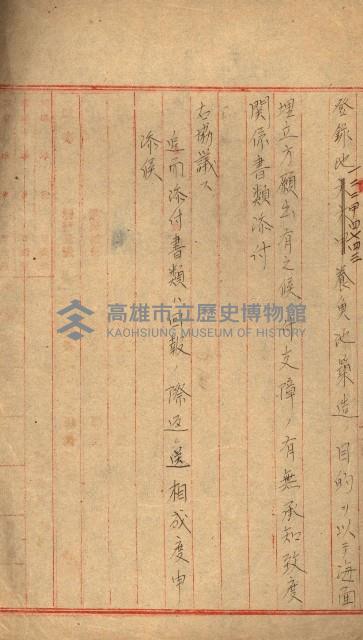 登錄地
養魚池築造ノ目的ヲ以テ海面
埋立方願出有之候ニ付支障ノ有無承知致度
関係書類添付
右協議ス
追而添付書類ハ回報ノ際返送相成度申
添候
高雄市立歷史博物館
KAOHSIUNG MUSEUM OF HISTORY